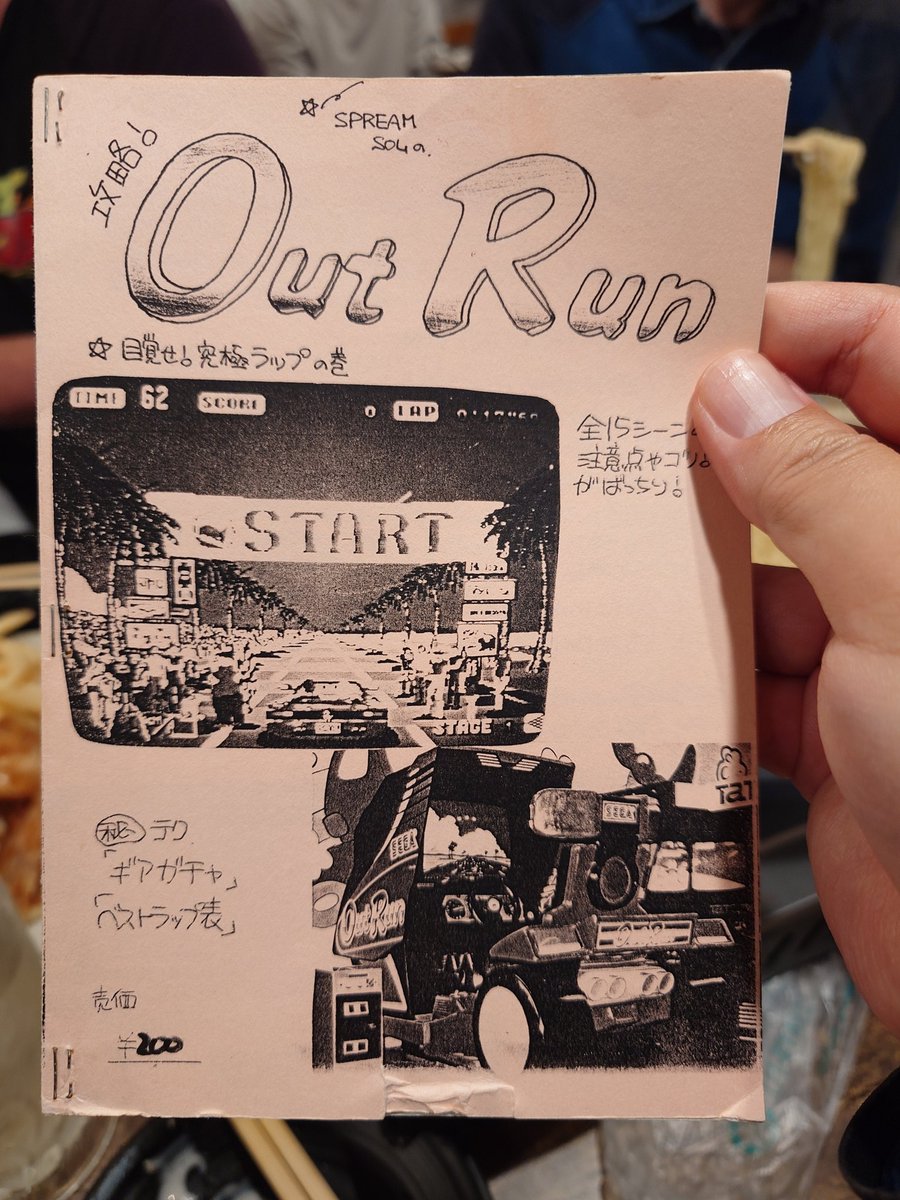 ☆ SPREAM
SOLの.
攻略!
Out Run
☆ 目覚せ!究極ラップの巻
TIME 62 SCORE 0 LAP
全15シーンの
注意点やコツ。
がばっちり!
START
STAGE 1
㊙テク
「ギアガチャ」
「ベストラップ表」
SEGA
SEGA
OutRun
OutRun
売価
¥200